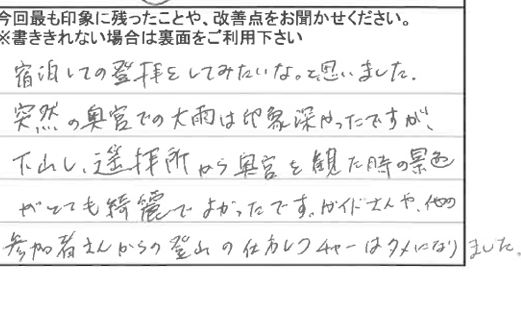 今回最も印象に残ったことや、改善点をお聞かせください。
※書ききれない場合は裏面をご利用下さい
宿泊しての登拝をしてみたいな。と思いました。
突然の奥宮での大雨は印象深かったですが、
下山し、遥拝所から奥宮を観た時の景色
がとても綺麗でよかったです。ガイドさんや、他の
参加者さんからの登山の仕方レクチャーはタメになりました。